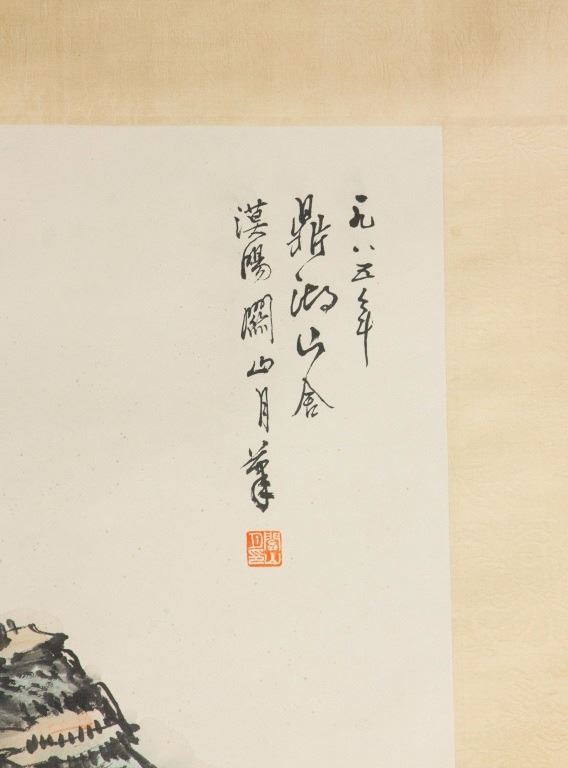 一九八五年
鼎湖山舍
漠陽關山月筆
關山月印